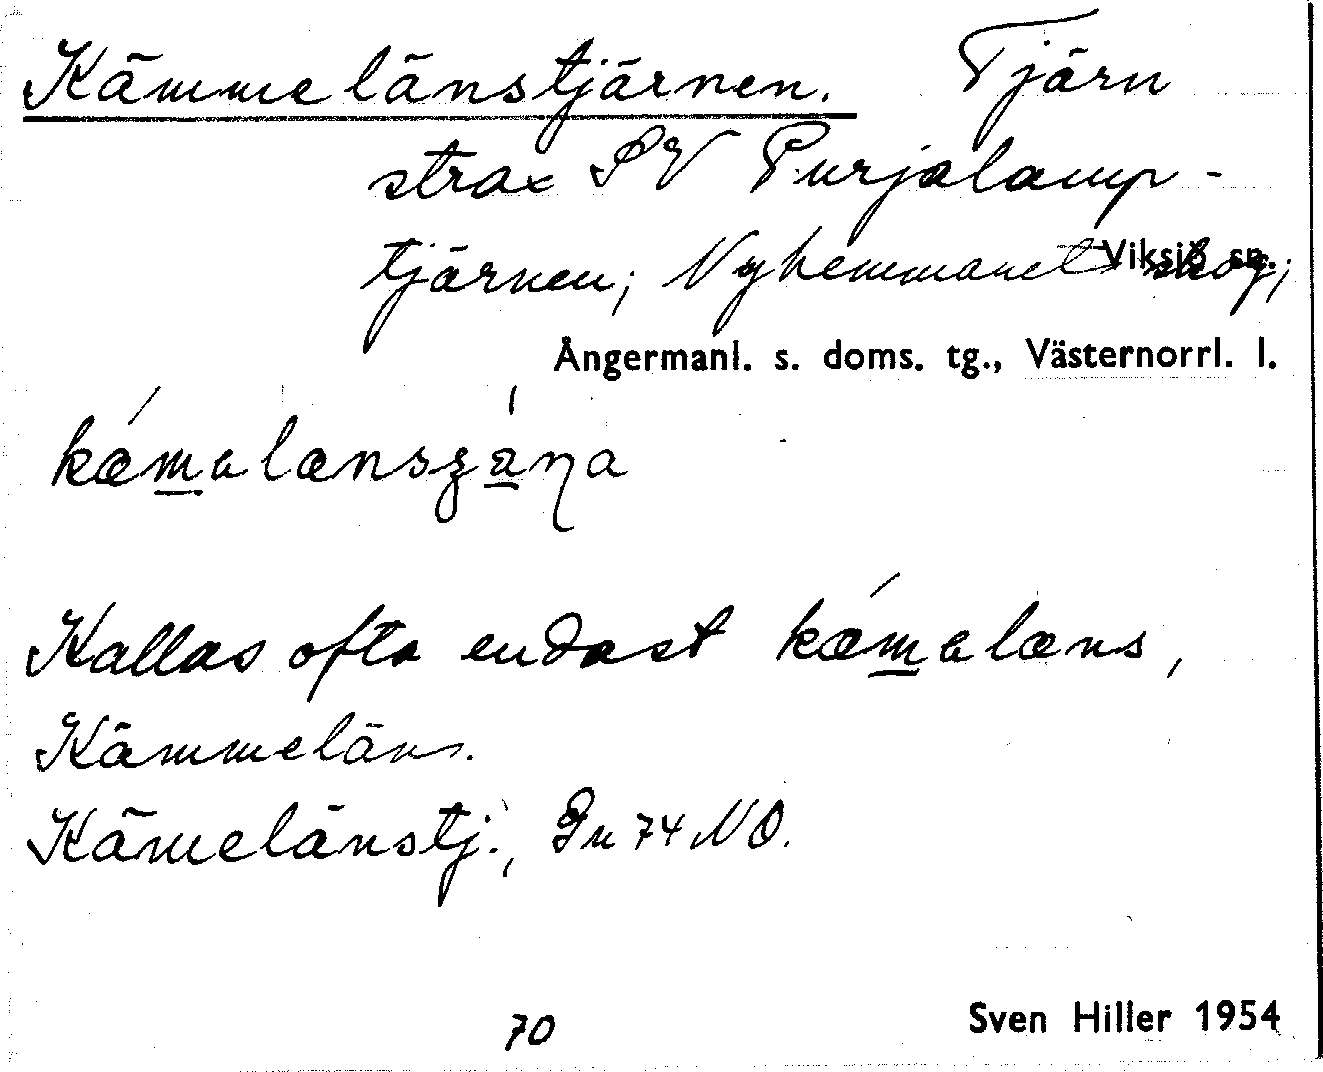 Kämmelänstjärnen. Tjärn
strax SV Purjalamp-
tjärnen; Nyhemmanet skog;
Viksjö sn.
Ångermanl. s. doms. tg., Västernorrl. l.
Kallas ofta endast
Kämmeläns.
Kämelänstj., Gn 74 NO.
70
Sven Hiller 1954